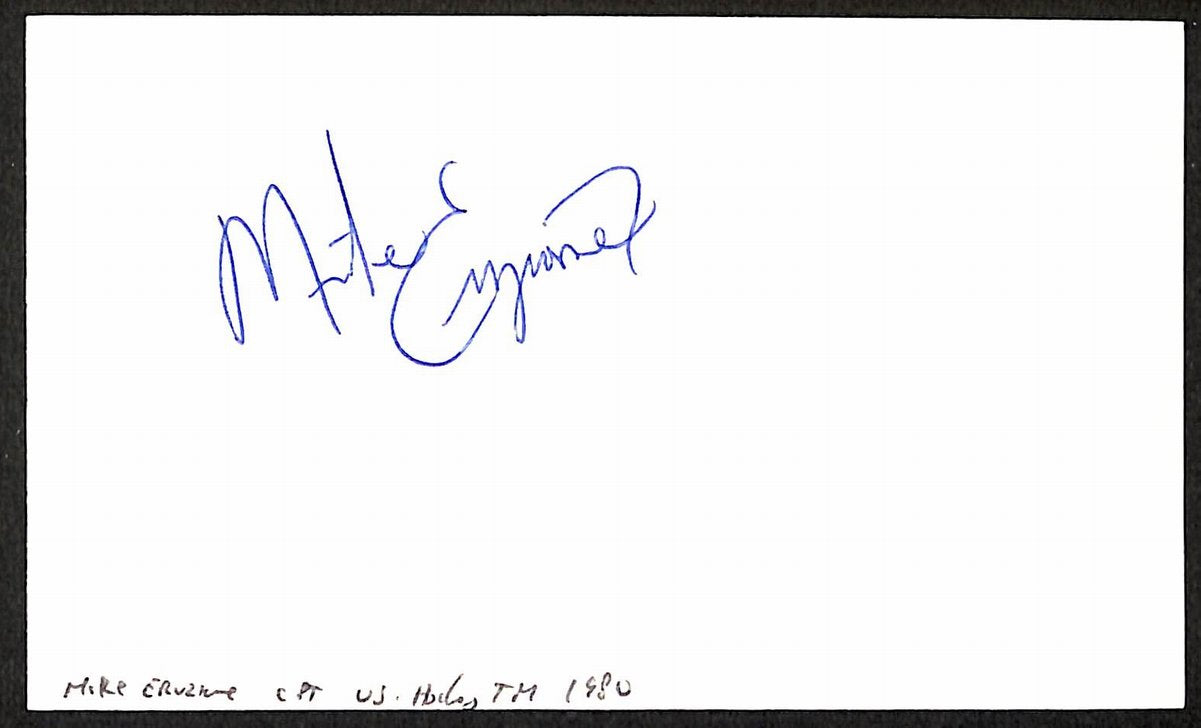 Mike Eruzione
Mike ERUZIONE CPT US. Hockey TM 1980